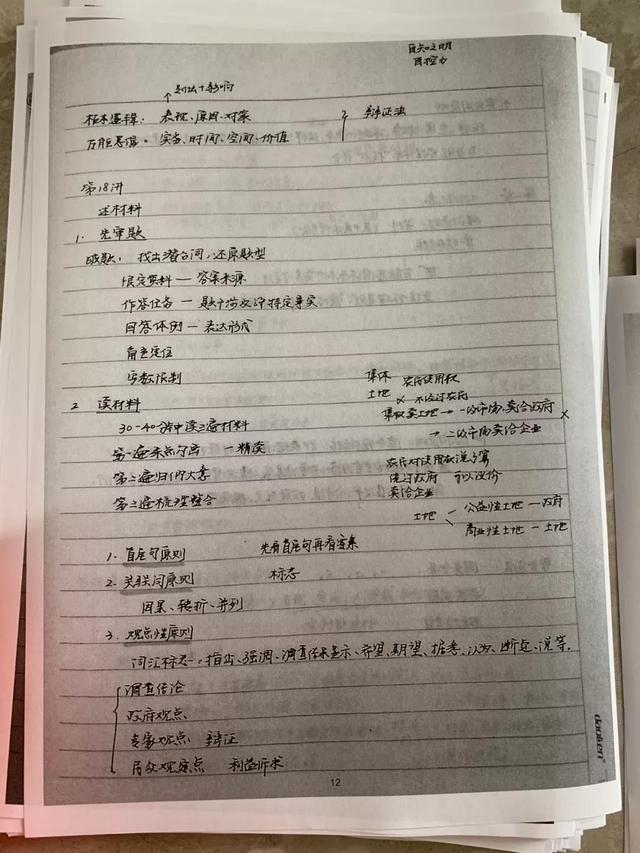 自知之明
自控力
↑ 做法+影响
标本逻辑：表现、原因、对策
2 辩证法
万能思维：实务、时间、空间、价值
第18讲
述材料
1. 先审题
破题：找出潜台词，还原题型
限定资料 — 答案来源
作答任务 — 题干涉及的特定事实
回答体例 — 表达形式
角色定位
字数限制
2 读材料
集体 农民使用权
土地 × 不经过农府
集权卖土地 → 一级市场，卖给政府 ×
→ 二级市场卖给企业
30-40分钟读三遍材料
第一遍亲点勾画 — 精读
第二遍归纳大意
第三遍梳理整合
农民对使用权说了算
绕过政府 可以议价
卖给企业
土地 < 公益性土地 — 政府
商业性土地 — 土地
1. 首尾句原则 先看首尾句再看答案
2. 关联词原则 标志
因果、转折、并列
3. 观点性原则
词汇标志：指出、强调、调查结果显示、希望、期望、据悉、认为、断定、说等.
调查结论
政府观点
专家观点 辩证
民众观点 利益诉求
12